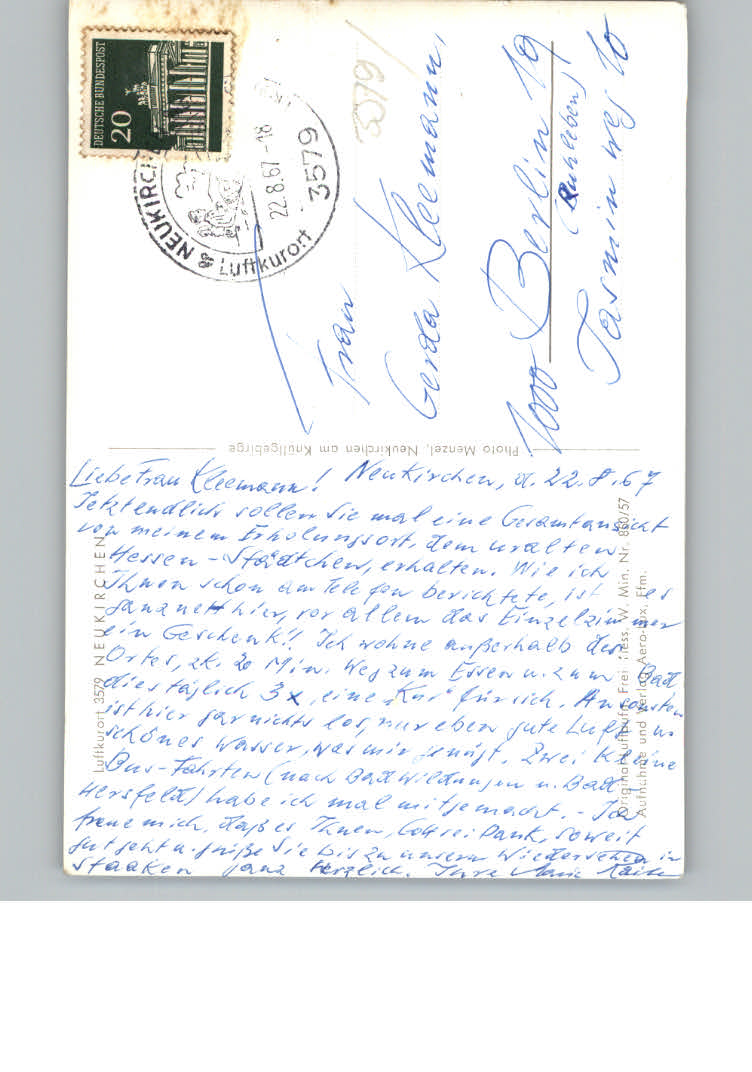 DEUTSCHE BUNDESPOST
20
NEUKIRCHEN
22.8.67-18
3579
Luftkurort
3579/
Frau
Gerda Kleemann,
1000 Berlin 19
(Ruhleben)
Jasminweg 10
Photo Menzel, Neukirchen am Knüllgebirge
Luftkurort 3579 NEUKIRCHEN
Originalluftaufn. Frei Hess. W. Min. Nr. 860/57
Aufnahme und Verlag Aero-Lux, Ffm.
Neukirchen, d. 22.8.67
Liebe Frau Kleemann!
Letztendlich sollen Sie mal eine Gesamtansicht
von meinem Erholungsort, dem uralten
Hessen-Städtchen, erhalten. Wie ich
Ihnen schon am Telefon berichtete, ist es
ganz nett hier, vor allem das Einzelzimmer
ein Geschenk!! Ich wohne außerhalb des
Ortes, zk. 20 Min. Weg zum Essen u. zum Bad,
dies täglich 3x, eine "Kur" für sich. Ansonsten
ist hier gar nichts los, nur eben gute Luft u.
schönes Wasser, was mir genügt. Zwei kleine
Bus-Fahrten (nach Bad Wildungen u. Bad
Hersfeld) habe ich mal mitgemacht. - Ich
freue mich, daß es Ihnen, Gott sei Dank, soweit
gut geht u. grüße Sie bis zu unserm Wiedersehen in
Staaken ganz herzlich. Ihre